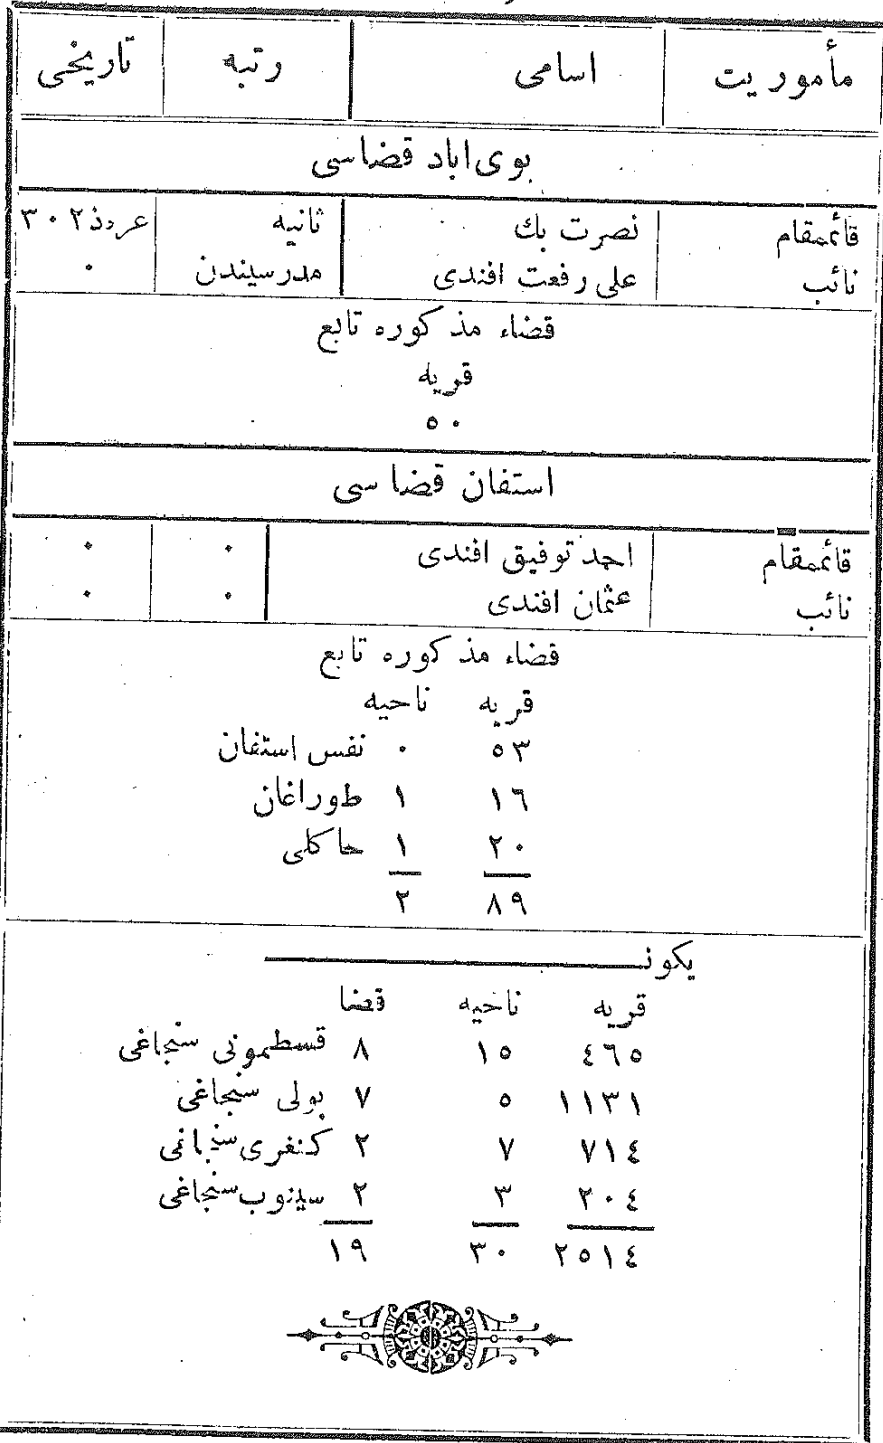 مأموريت اسامى رتبه تاريخى
بوى اباد قضاسى
قائممقام نصرت بك ثانيه ٣٠٢
نائب على رفعت افندى مدرسيندن ٠
قضاء مذكوره تابع
قريه
٥٠
استفان قضاسى
قائممقام احمد توفيق افندى ٠ ٠
نائب عثمان افندى ٠ ٠
قضاء مذكوره تابع
قريه ناحيه
٥٣ ٠ نفس استفان
١٦ ١ طوراغان
٢٠ ١ حاكلى
٨٩ ٢
يكون
قريه ناحيه قضا
٤٦٥ ١٥ ٨ قسطمونى سنجاغى
١١٣١ ٥ ٧ بولى سنجاغى
٧١٤ ٧ ٢ كنغرى سنجاغى
٢٠٤ ٣ ٢ سينوب سنجاغى
٢٥١٤ ٣٠ ١٩